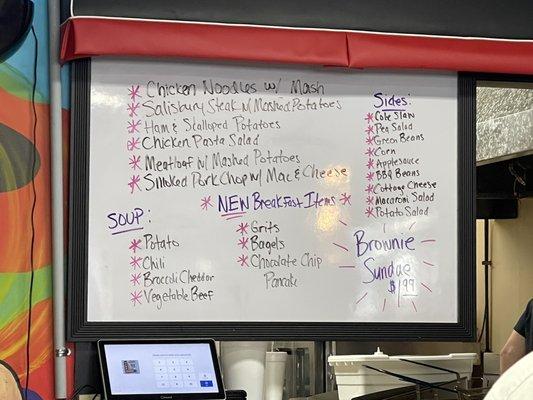 Chicken Noodles w/ Mash
Salisbury Steak w/ Mashed Potatoes
Ham & Scalloped Potatoes
Chicken Pasta Salad
Meatloaf w/ Mashed Potatoes
Smoked Pork Chop w/ Mac & Cheese
Sides:
Cole Slaw
Pea Salad
Green Beans
Corn
Applesauce
BBQ Beans
Cottage Cheese
Macaroni Salad
Potato Salad
NEW Breakfast Items
Grits
Bagels
Chocolate Chip
Pancake
SOUP:
Potato
Chili
Broccoli Cheddar
Vegetable Beef
Brownie
Sundae
$1.99